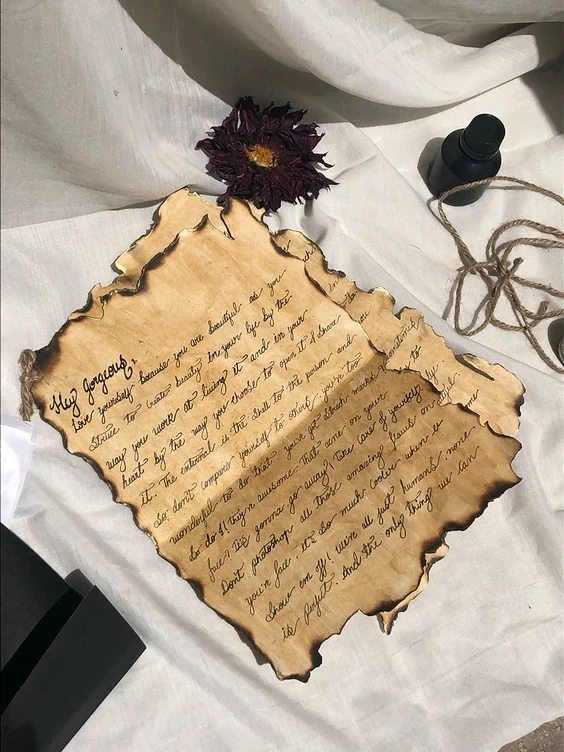 Hey gorgeous,
Love yourself because you are beautiful as you
Strive to create beauty in your life by the
way you work at living it and in your
heart by the way you choose to open it & share
it. The external is the shell to the person and
So, don't compare yourself to others, you're too
wonderful to do that. You've got stretch marks?
So do I! They're awesome. That acne on your
face? It's gonna go away! Take care of yourself.
Don't photoshop all those amazing flaws on
your face. It's so much cooler when u
show em off! We're all just humans none
is perfect. And the only thing we can